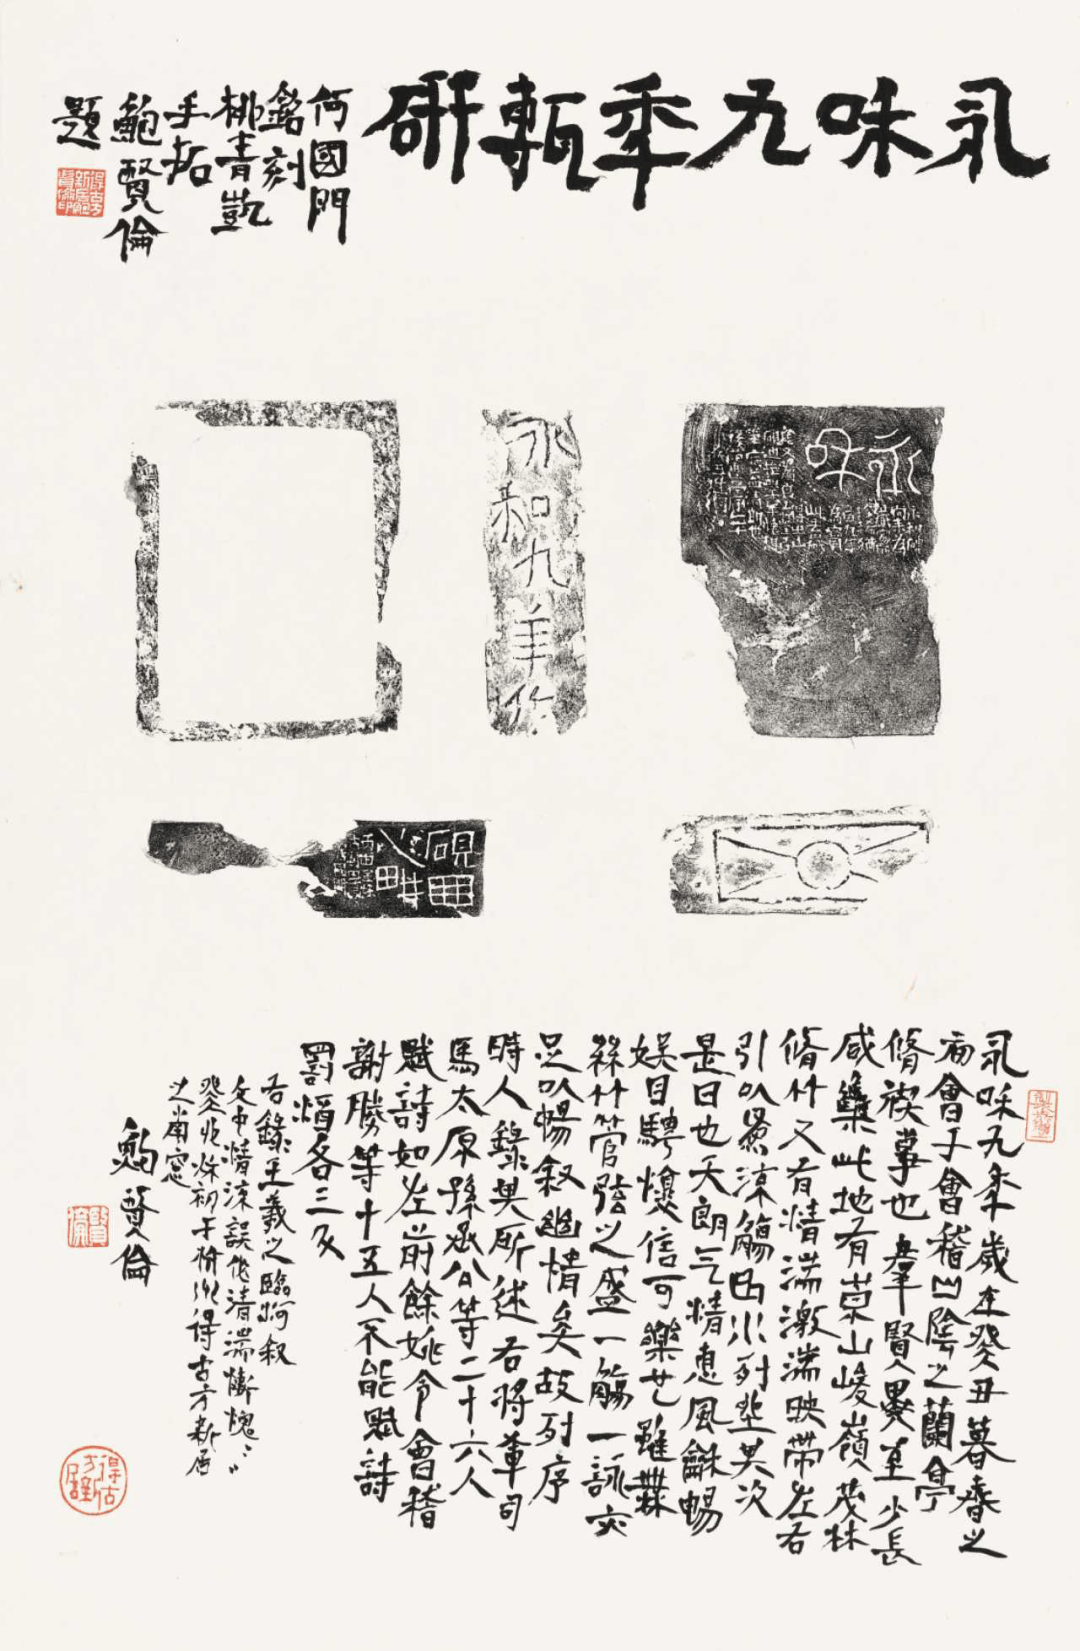 永咊九秊甎研
何國門
銘刻
桃青凱
手拓
鮑賢倫
題
永和
永和九年作
硯田
心畊
永咊九秊歲在癸丑暮春之
初會于會稽山陰之蘭亭
脩禊事也羣賢畢至少長
咸集此地有崇山峻嶺茂林
脩竹又有清湍激湍映帶左右
引以爲流觴曲水列坐其次
是日也天朗气清惠風龢暢
娛目騁懷信可樂也雖無
絲竹管弦之盛一觴一詠亦
足以暢叙幽情矣故列序
時人錄其所述右將軍司
馬太原孫丞公等二十六人
賦詩如左前餘姚令會稽
謝勝等十五人不能賦詩
罰酒各三斗
右錄王羲之臨河叙
文中清流誤作清湍慚愧〻〻
癸卯秋初于杭州得古方新居
之南窓
鮑賢倫
賢倫
得古方新居